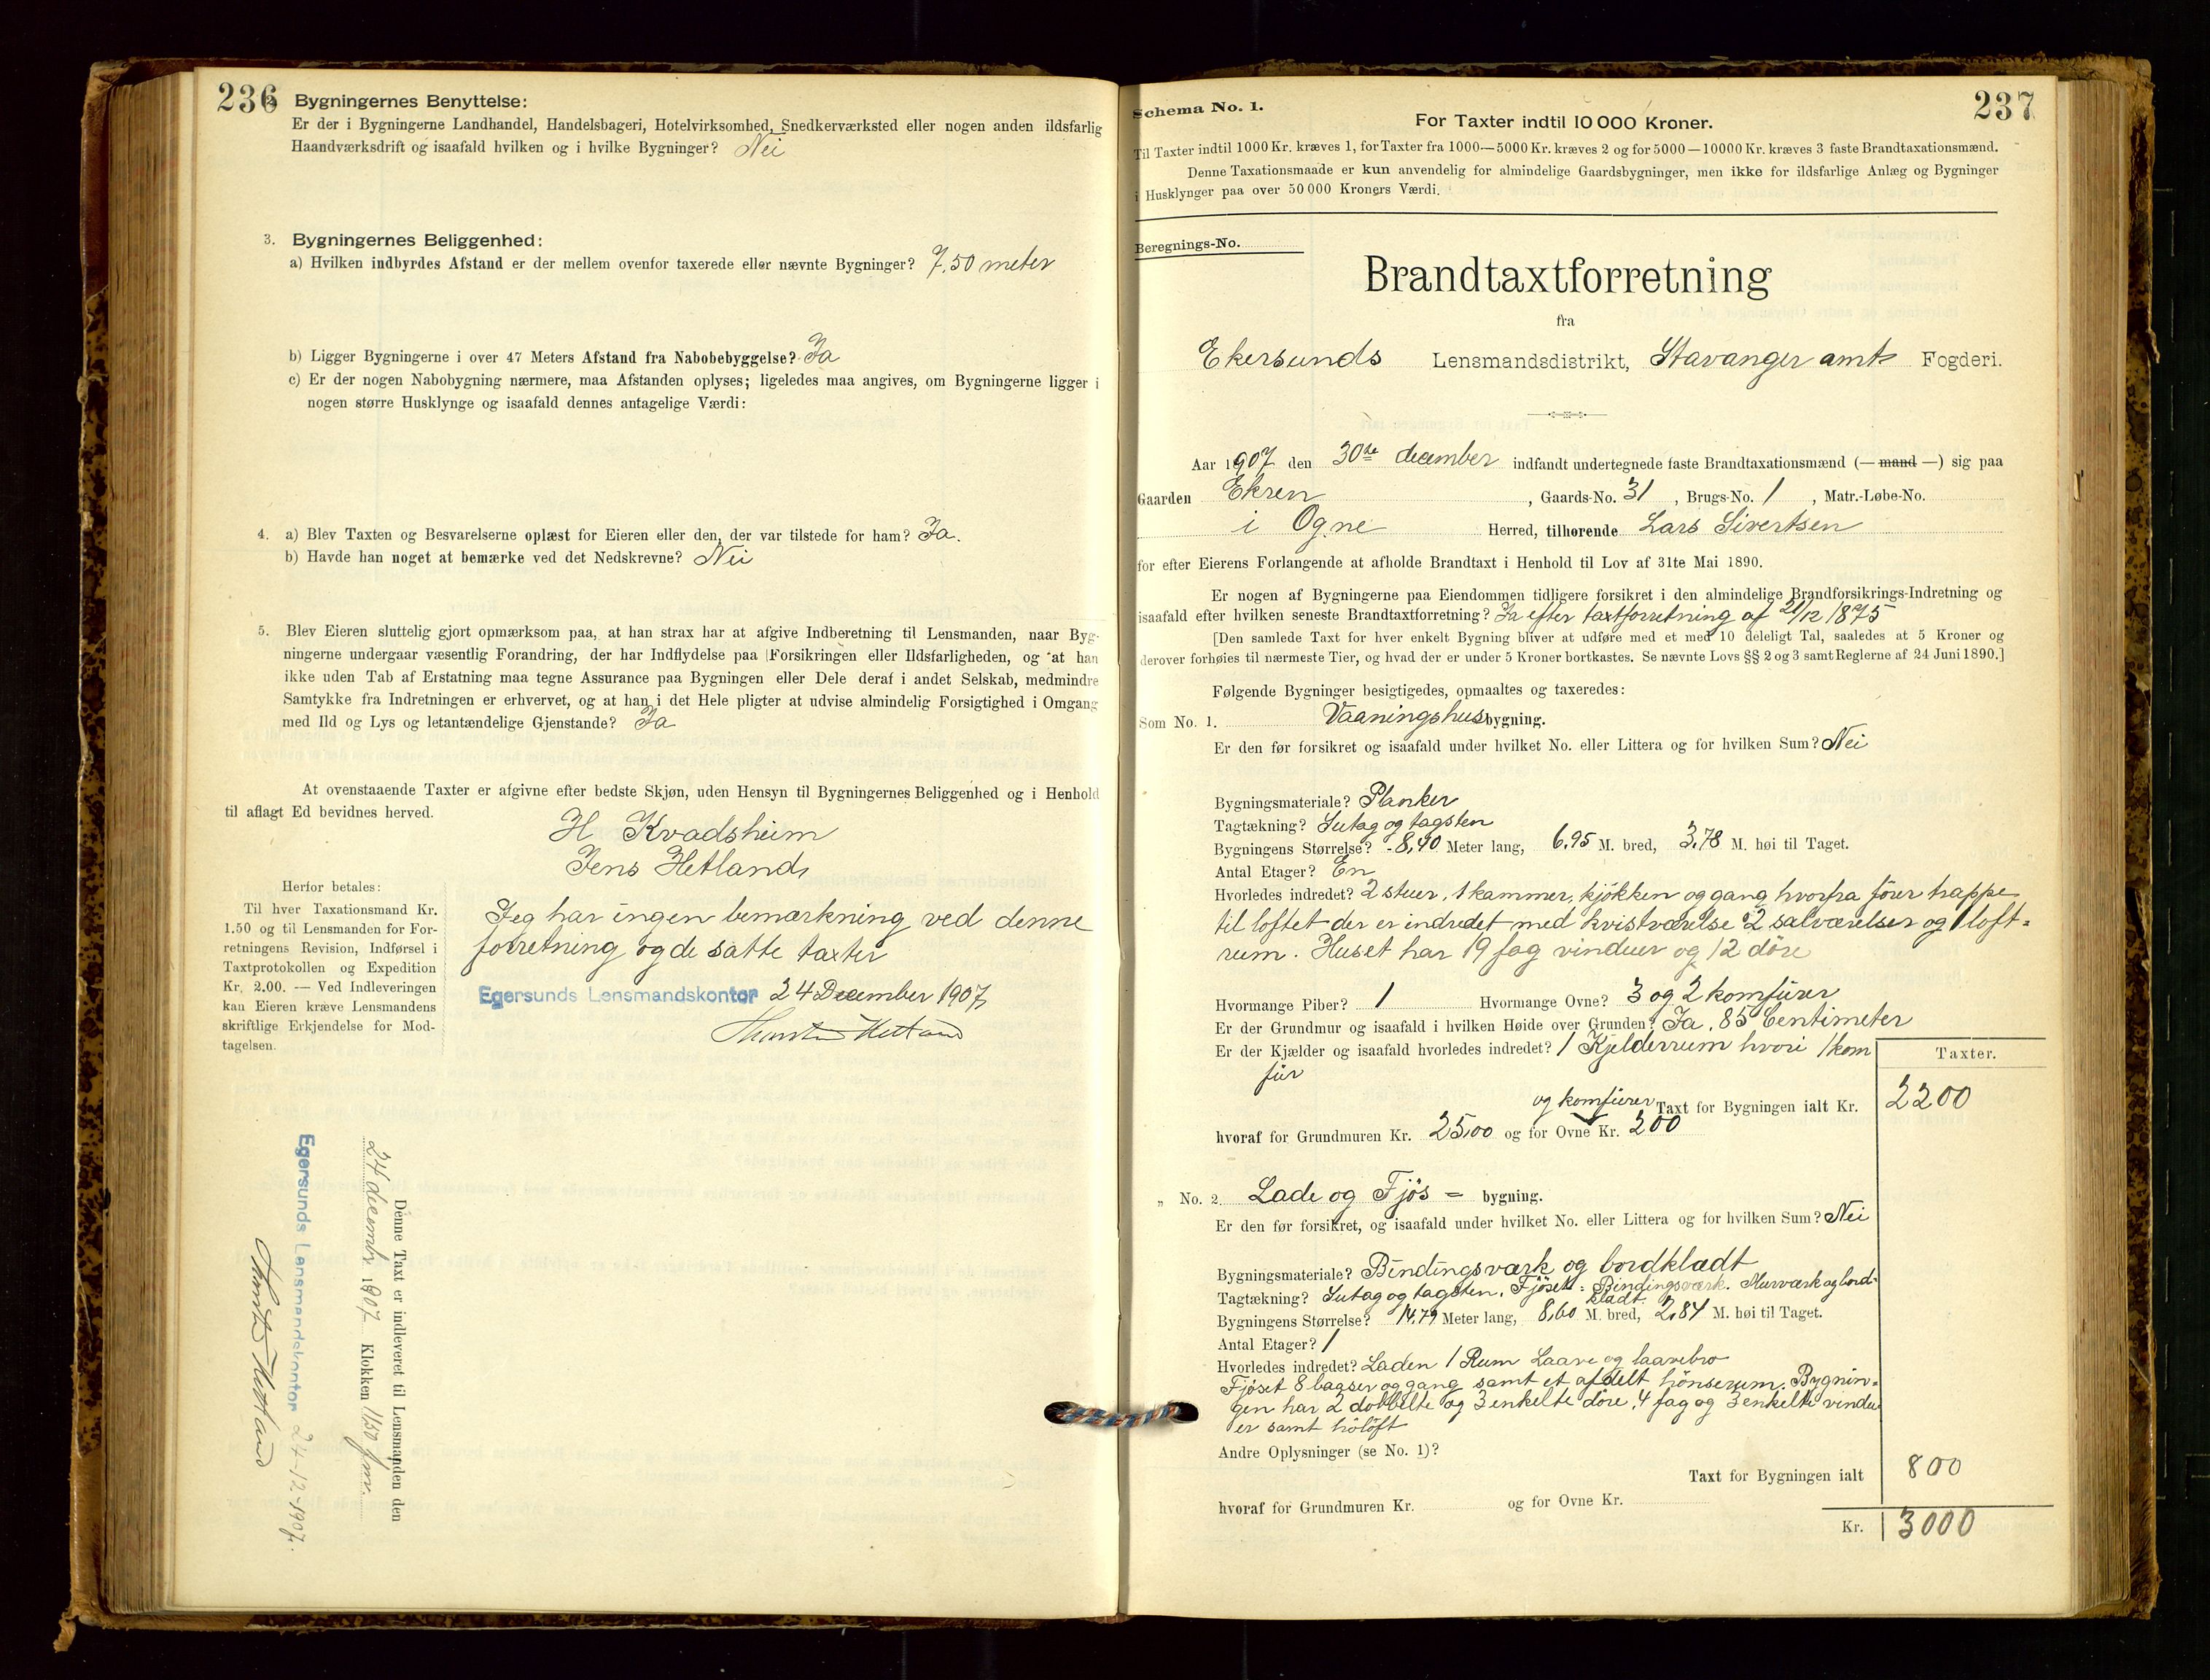 236
2. Bygningernes Benyttelse:
Er der i Bygningerne Landhandel, Handelsbageri, Hotelvirksomhed, Snedkerværksted eller nogen anden ildsfarlig
Haandværksdrift og isaafald hvilken og i hvilke Bygninger? Nei
3. Bygningernes Beliggenhed:
a) Hvilken indbyrdes Afstand er der mellem ovenfor taxerede eller nævnte Bygninger? 7,50 meter
b) Ligger Bygningerne i over 47 Meters Afstand fra Nabobebyggelse? Ja
c) Er der nogen Nabobygning nærmere, maa Afstanden oplyses; ligeledes maa angives, om Bygningerne ligger i
nogen større Husklynge og isaafald dennes antagelige Værdi:
4. a) Blev Taxten og Besvarelserne oplæst for Eieren eller den, der var tilstede for ham? Ja.
b) Havde han noget at bemærke ved det Nedskrevne? Nei
5. Blev Eieren sluttelig gjort opmærksom paa, at han strax har at afgive Indberetning til Lensmanden, naar Byg-
ningerne undergaar væsentlig Forandring, der har Indflydelse paa Forsikringen eller Ildsfarligheden, og at han
ikke uden Tab af Erstatning maa tegne Assurance paa Bygningen eller Dele deraf i andet Selskab, medmindre
Samtykke fra Indretningen er erhvervet, og at han i det Hele pligter at udvise almindelig Forsigtighed i Omgang
med Ild og Lys og letantændelige Gjenstande? Ja
At ovenstaaende Taxter er afgivne efter bedste Skjøn, uden Hensyn til Bygningernes Beliggenhed og i Henhold
til aflagt Ed bevidnes herved.
H Kvadsheim
Jens Hetland
Herfor betales:
Til hver Taxationsmand Kr.
1.50 og til Lensmanden for For-
retningens Revision, Indførsel i
Taxtprotokollen og Expedition
Kr. 2.00. — Ved Indleveringen
kan Eieren kræve Lensmandens
skriftlige Erkjendelse for Mod-
tagelsen.
Jeg har ingen bemærkning ved denne
forretning og de satte taxter
Egersunds Lensmandskontor 24 December 1907
Hetland
Denne Taxt er indleveret til Lensmanden den
24 decembr 1907 Klokken 1130 fmr.
Egersunds Lensmandskontor 24-12-1907.
Hetland
237
Schema No. 1.
For Taxter indtil 10 000 Kroner.
Til Taxter indtil 1000 Kr. kræves 1, for Taxter fra 1000—5000 Kr. kræves 2 og for 5000—10000 Kr. kræves 3 faste Brandtaxationsmænd.
Denne Taxationsmaade er kun anvendelig for almindelige Gaardsbygninger, men ikke for ildsfarlige Anlæg og Bygninger
i Husklynger paa over 50 000 Kroners Værdi.
Beregnings-No.
Brandtaxtforretning
fra
Ekersunds Lensmandsdistrikt, Stavanger amts Fogderi.
Aar 1907 den 30te december indfandt undertegnede faste Brandtaxationsmænd (— mand —) sig paa
Gaarden Ekren, Gaards-No. 31, Brugs-No. 1, Matr.-Løbe-No.
i Ogne Herred, tilhørende Lars Sivertsen
for efter Eierens Forlangende at afholde Brandtaxt i Henhold til Lov af 31te Mai 1890.
Er nogen af Bygningerne paa Eiendommen tidligere forsikret i den almindelige Brandforsikrings-Indretning og
isaafald efter hvilken seneste Brandtaxtforretning? Ja efter taxtforretning af 21/12 1875
[Den samlede Taxt for hver enkelt Bygning bliver at udføre med et med 10 deleligt Tal, saaledes at 5 Kroner og
derover forhøies til nærmeste Tier, og hvad der er under 5 Kroner bortkastes. Se nævnte Lovs §§ 2 og 3 samt Reglerne af 24 Juni 1890.]
Følgende Bygninger besigtigedes, opmaaltes og taxeredes:
Som No. 1. Vaaningshusbygning.
Er den før forsikret og isaafald under hvilket No. eller Littera og for hvilken Sum? Nei
Bygningsmateriale? Planker
Tagtækning? Sutag og tagsten
Bygningens Størrelse? 8,40 Meter lang, 6,95 M. bred, 3,78 M. høi til Taget.
Antal Etager? En
Hvorledes indredet? 2 stuer, 1 kammer, kjökken og gang hvorfra förer trappe
til loftet der er indredet med kvistværelse 2 salværelser og 1 loft=
rum. Huset har 19 fag vinduer og 12 döre
Hvormange Piber? 1 Hvormange Ovne? 3 og 2 komfürer
Er der Grundmur og isaafald i hvilken Høide over Grunden? Ja, 85 Centimeter
Er der Kjælder og isaafald hvorledes indredet? 1 Kjelderrum hvori 1 kom
für
Taxter.
og komfürer Taxt for Bygningen ialt Kr. 2200
hvoraf for Grundmuren Kr. 25,00 og for Ovne Kr. 200
„ No. 2. Lade og Fjös = bygning.
Er den før forsikret, og isaafald under hvilket No. eller Littera og for hvilken Sum? Nei
Bygningsmateriale? Bindingsværk og bordklædt
Tagtækning? Sutag og tagsten. Fjöset: Bindingsværk. Murværk og bord=
klædt.
Bygningens Størrelse? 14,79 Meter lang, 8,60 M. bred, 2,84 M. høi til Taget.
Antal Etager? 1
Hvorledes indredet? Laden 1 Rum Laave og laavebro
Fjöset 8 baaser og gang samt et afdelt hönserum. Bygnin=
gen har 2 dobbelte og 3 enkelte döre, 4 fag og 3 enkelte vindu
er samt höloft
Andre Oplysninger (se No. 1)?
Taxt for Bygningen ialt 800
hvoraf for Grundmuren Kr. og for Ovne Kr.
Kr. 3000